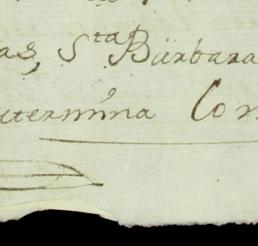 as, Sta Barbara
determina Con